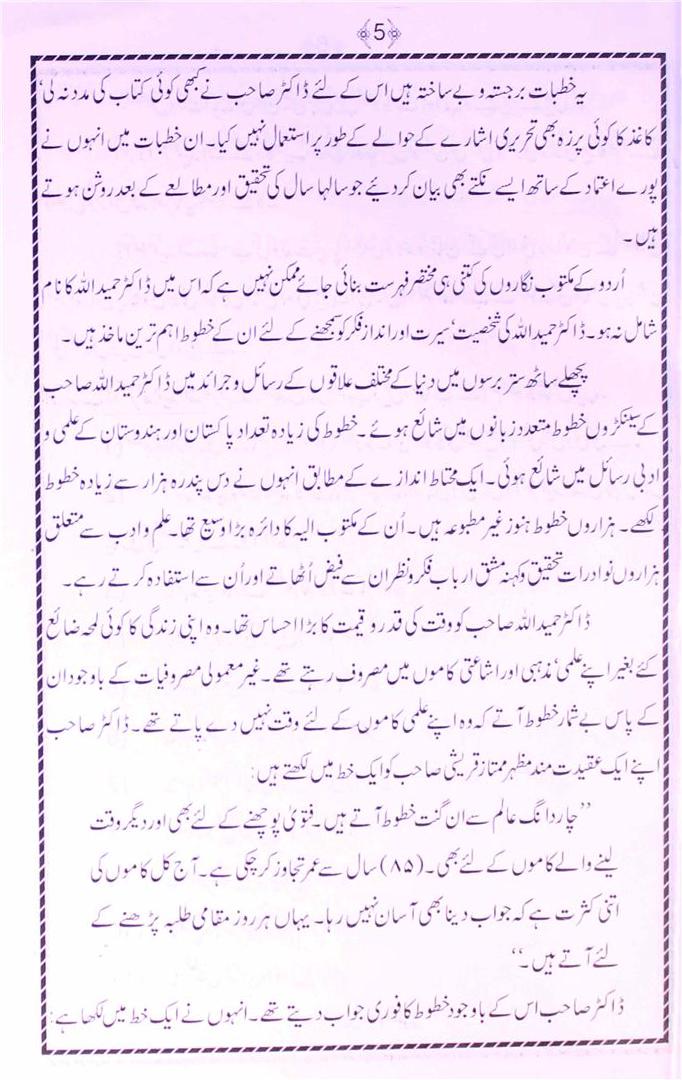 5
یہ خطبات برجستہ و بے ساختہ ہیں اس کے لئے ڈاکٹر صاحب نے کبھی کوئی کتاب کی مدد نہ لی‘
کاغذ کا کوئی پرزہ بھی تحریری اشارے کے حوالے کے طور پر استعمال نہیں کیا۔ ان خطبات میں انہوں نے
پورے اعتماد کے ساتھ ایسے نکتے بھی بیان کر دیئے جو سالہا سال کی تحقیق اور مطالعے کے بعد روشن ہوتے
ہیں۔
اُردو کے مکتوب نگاروں کی کتنی ہی مختصر فہرست بنائی جائے ممکن نہیں ہے کہ اس میں ڈاکٹر حمید اللہ کا نام
شامل نہ ہو۔ ڈاکٹر حمید اللہ کی شخصیت‘ سیرت اور انداز فکر کو سمجھنے کے لئے ان کے خطوط اہم ترین ماخذ ہیں۔
پچھلے ساٹھ ستر برسوں میں دنیا کے مختلف علاقوں کے رسائل و جرائد میں ڈاکٹر حمید اللہ صاحب
کے سینکڑوں خطوط متعدد زبانوں میں شائع ہوئے۔ خطوط کی زیادہ تعداد پاکستان اور ہندوستان کے علمی و
ادبی رسائل میں شائع ہوئی۔ ایک محتاط اندازے کے مطابق انہوں نے دس پندرہ ہزار سے زیادہ خطوط
لکھے۔ ہزاروں خطوط ہنوز غیر مطبوعہ ہیں۔ اُن کے مکتوب الیہ کا دائرہ بڑا وسیع تھا۔ علم و ادب سے متعلق
ہزاروں نوادرات تحقیق و کہنہ مشق ارباب فکر و نظر ان سے فیض اُٹھاتے اور اُن سے استفادہ کرتے رہے۔
ڈاکٹر حمید اللہ صاحب کو وقت کی قدر و قیمت کا بڑا احساس تھا۔ وہ اپنی زندگی کا کوئی لمحہ ضائع
کئے بغیر اپنے علمی‘ مذہبی اور اشاعتی کاموں میں مصروف رہتے تھے۔ غیر معمولی مصروفیات کے باوجود ان
کے پاس بے شمار خطوط آتے کہ وہ اپنے علمی کاموں کے لئے وقت نہیں دے پاتے تھے۔ ڈاکٹر صاحب
اپنے ایک عقیدت مند مظہر ممتاز قریشی صاحب کو ایک خط میں لکھتے ہیں:
’’چار دانگ عالم سے ان گنت خطوط آتے ہیں۔ فتویٰ پوچھنے کے لئے بھی اور دیگر وقت
لینے والے کاموں کے لئے بھی۔ (۸۵) سال سے عمر تجاوز کر چکی ہے۔ آج کل کاموں کی
اتنی کثرت ہے کہ جواب دینا بھی آسان نہیں رہا۔ یہاں ہر روز مقامی طلبہ پڑھنے کے
لئے آتے ہیں۔‘‘
ڈاکٹر صاحب اس کے باوجود خطوط کا فوری جواب دیتے تھے۔ انہوں نے ایک خط میں لکھا ہے: